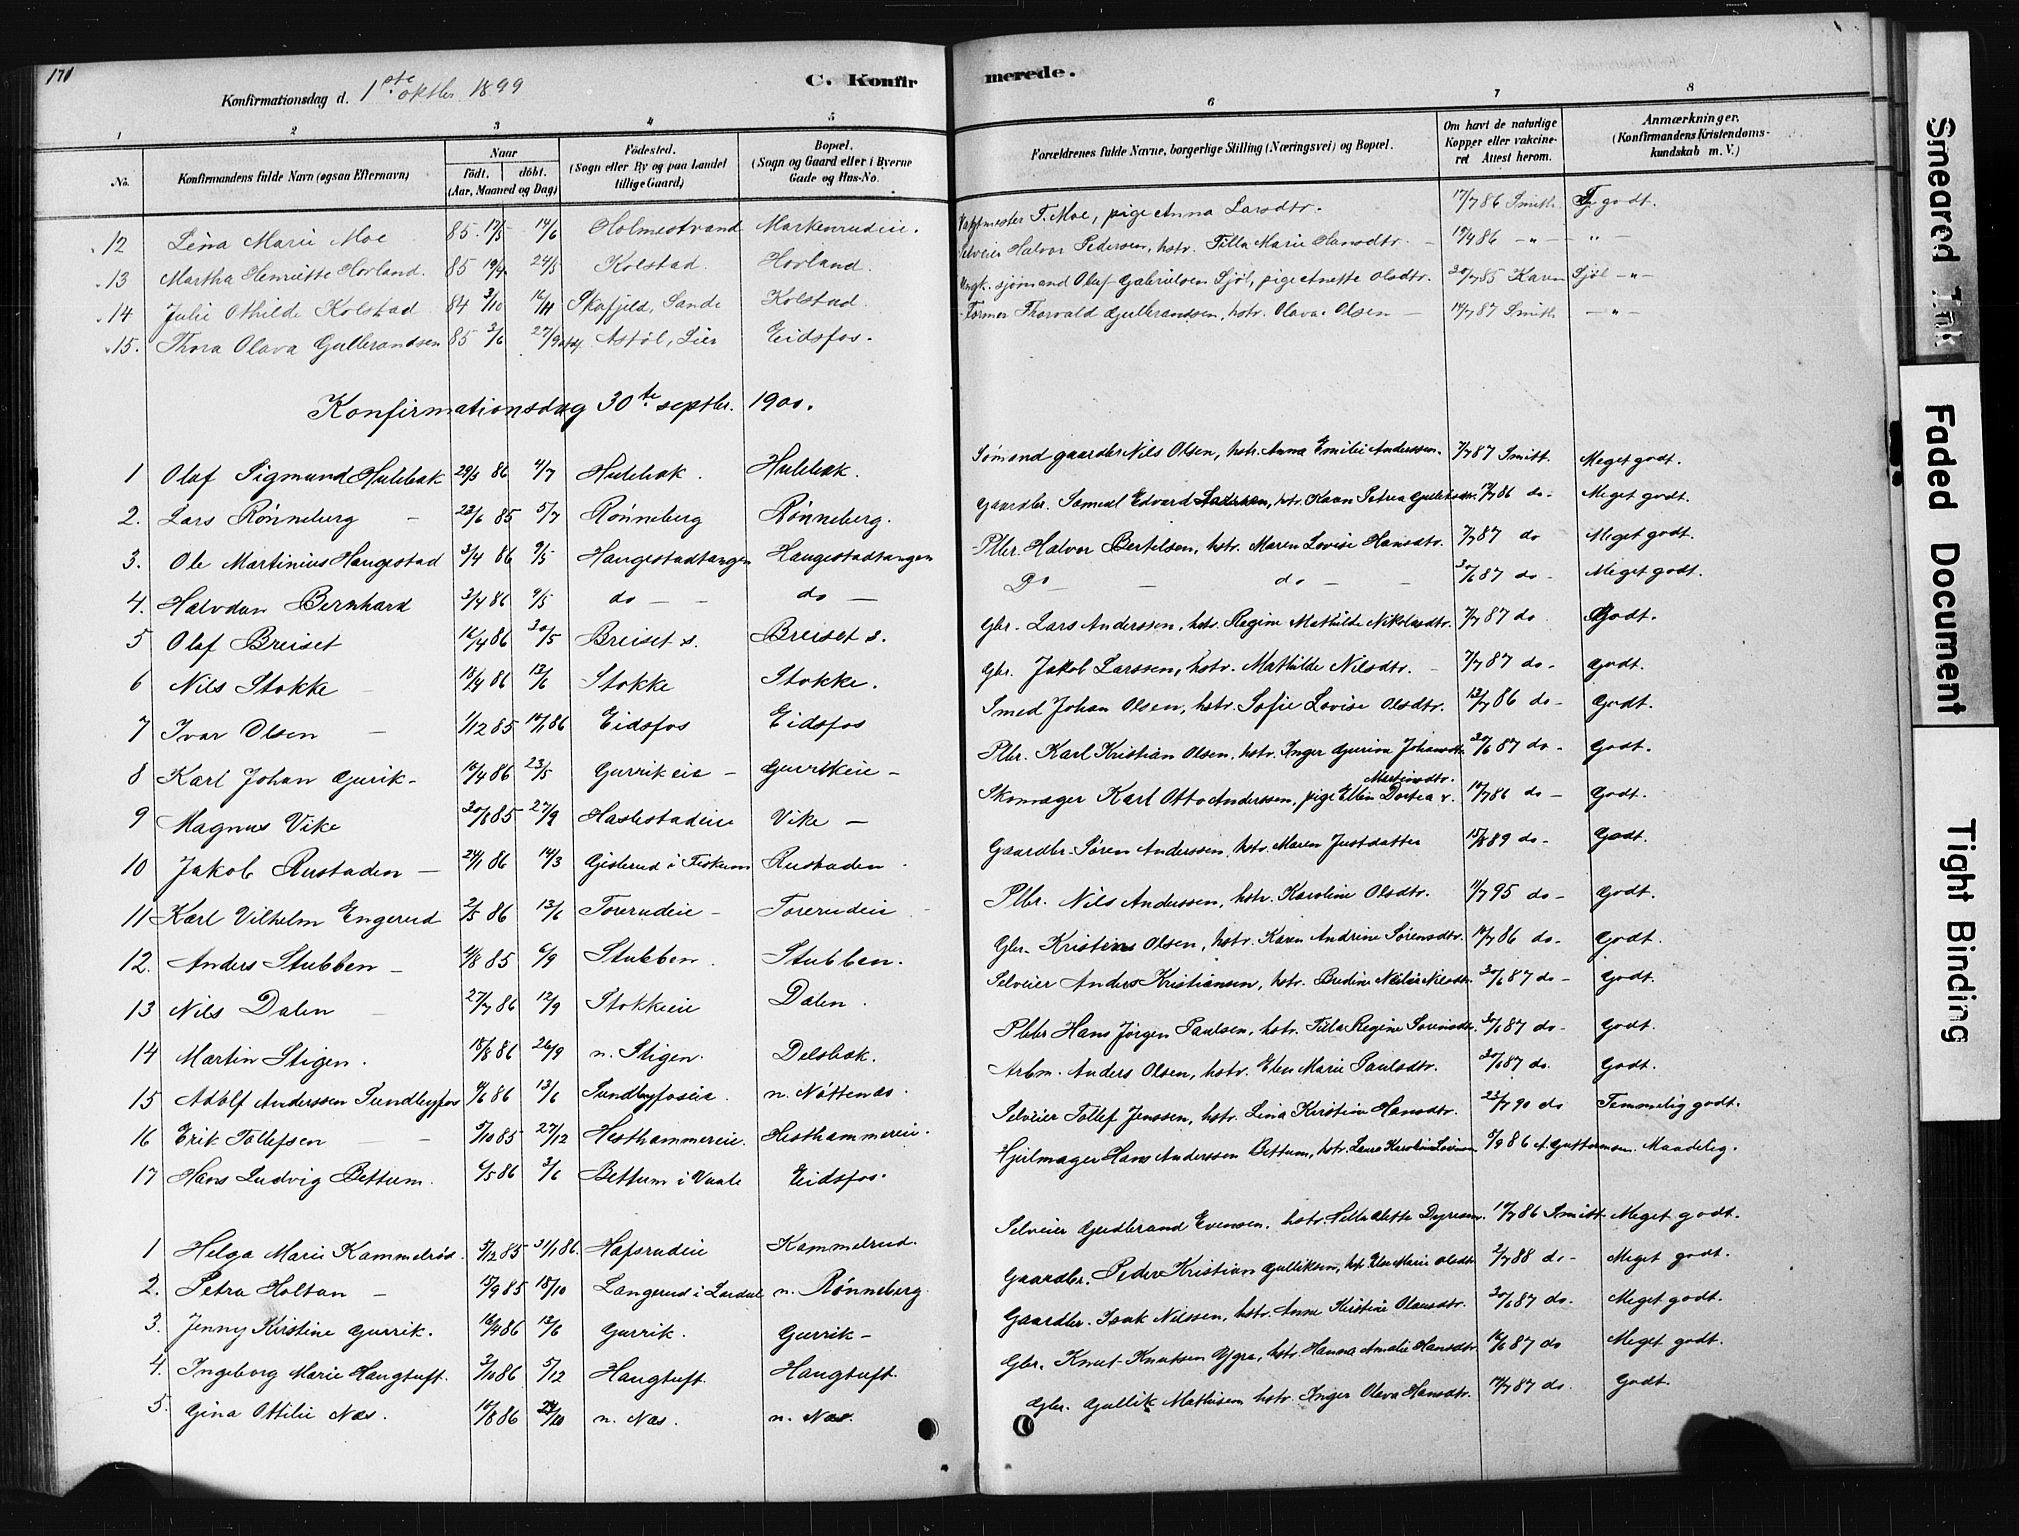 170
Konfirmationsdag d. 1ste oktbr. 1899
C. Konfirmerede.
1 2 3 4 5 6 7 8
No. Konfirmandens fulde Navn (ogsaa Efternavn) Naar født. døbt. (Aar, Maaned og Dag) Fødested. (Sogn eller By og paa Landet tillige Gaard) Bopæl. (Sogn og Gaard eller i Byerne Gade og Hus-No. Forældrenes fulde Navne, borgerlige Stilling (Næringsvei) og Bopæl. Om havt de naturlige Kopper eller vakcineret Attest herom. Anmærkninger. (Konfirmandens Kristendomskundskab m. V.)
12 Lena Marie Moe 85 17/5 14/6 Holmestrand Markenrudeie. T. Moe, pige Anna Larsdtr. 17/7 86 Smith Tg. godt.
13 Martha Henriette Hovland. 85 19/4 24/5 Kolstad. Hovland. Selveier Halvor Pedersen, hstr. Tilla Marie Hansdtr. - 86 - " - - " -
14 Julie Othilde Kolstad 84 3/10 16/11 Skafjeld, Sande Kolstad sjømand Oluf Gabrielsen Sjøl, pige Anette Olsdtr. 20/7 85 Karen Sjøl - " -
15. Thora Olava Gulbrandsen 85 3/6 27/9 Astøl, Lier Eidsfos. Former Thorvald Gulbrandsen, hstr. Olava Olsen - 14/7 87 Smith - " -
Konfirmationsdag 30te septbr. 1900.
1 Olaf Sigmund Hulebak 29/3 86 4/7 Hulebak. Hulebak. Sømand gaardbr Nils Olsen, hstr. Anna Emilie Anderssen. 7/7 87 Smitt. Meget godt.
2. Lars Rønneberg - 23/6 85 5/7 Rønneberg Rønneberg. Gaardbr. Samuel Edvard hstr. Karen Petrea 86 do - Meget godt.
3. Ole Martinius Haugestad 3/4 86 9/5 Haugestadtangen Haugestadtangen Plbr. Halvor Bertelsen, hstr. Maren Lovise Hansdtr. 7/7 87 do Meget godt.
4. Halvdan Bernhard 3/4 86 9/5 do - - do - Do - do - - 30/6 87 do - Meget godt.
5 Olaf Breiset 16/4 86 30/5 Breiset s. Breiset s. Gbr. Lars Anderssen, hstr. Regine Mathilde Nikolasdtr. 7/7 87 do Godt.
6 Nils Stokke - 18/4 86 13/6 Stokke Stokke. Gbr. Jakob Larssen, hstr. Mathilde Nilsdtr. - 7/7 87 do - Godt.
7 Ivar Olsen - 1/12 85 17/1 86 Eidsfos Eidsfos Smed Johan Olsen, hstr. Sofie Lovise Olsdtr. 13/7 86 do - Godt.
8 Karl Johan Gurik - 16/4 86 23/5 Gurrikeie - Gurrikeie - Plbr. Karl Kristian Olsen, hstr. Inger Gurine Johansdtr. 30/6 87 do - Godt.
9 Magnus Vike 20/8 85 27/9 Haslestadeie Vike - Skomager Karl Otto Anderssen, pige Ellen Dortea Martinsdtr. 86 do - Godt.
10 Jakob Rustaden - 24/1 86 14/3 Gislerud i Fiskum Rustaden. Gaardbr. Søren Anderssen, hstr. Maren Justdatter 15/8 89 do - Godt.
11 Karl Vilhelm Engerud 2/5 86 13/6 Torerudeie - Torerudeie - Plbr. Nils Anderssen, hstr. Karoline Olsdtr. 11/7 95 do - Godt.
12. Anders Stubben - 4/8 85 6/9 Stubben. Stubben. Gbr. Kristians Olsen, hstr. Karen Andrine Sørensdtr. 86 do - Godt.
13 Nils Dalen - 27/7 86 12/9 Stokkeeie Dalen. Selveier Anders Kristiansen, hstr. Bredine 30/6 87 do - Godt.
14 Martin Stigen. 18/8 86 26/9 n. Stigen. Delebak. Plbr Hans Jørgen Paulsen, hstr. Tilla Regine Sørensdtr. 30/6 87 do - Godt.
15 Adolf Anderssen Sundbyfos 4/6 86 13/6 Sundbyfoseie. n. Nøttenæs. Arbm. Anders Olsen, hstr. Elen Marie Paulsdtr. 30/6 87 do. Godt.
16 Erik Tollefsen - - 5/10 85 27/12 Hesthammereie. Hesthammereie. Selveier Tollef Jenssen, hstr. Lina Kirstine Hansdtr. 23/7 90 do Temmelig godt.
17 Hans Ludvig Bettum. 6/5 86 3/6 Bettum i Vaale Eidsfos. Hjulmager Hans Anderssen Bettum, hstr. 5/9 86 A. Guttormsen. Maadelig.
1 Helga Marie Kammelrød. 5/12 85 31/1 86. Hafsrudeie Kammelrud. Selveier Gudbrand Evensen, hstr. 17/7 86 Smitt Meget godt.
2. Petra Holtan - 15/9 85 18/10 Langerud i Lardal n. Rønneberg. Gaardbr. Peder Kristian Gulliksen, hstr Elen Marie Olsdtr 2/7 88 do - Meget godt.
3. Jenny Kirstine Gurrik. 16/4 86 12/6 Gurrik. Gurrik - Gaardbr. Isak Nilssen, hstr. Anne Kirstine Olausdtr. 30/6 87 do. Meget godt.
4. Ingeborg Marie Haugtuft. 3/10 86 5/12 Haugtuft. Haugtuft. Gbr. Knut Knutsen Ygra, hstr. Hanna Amalie Hansdtr 87 do Meget godt.
5. Gina Ottilie Næs. 8 86 n. Næs. n. Næs. Gbr. Gullik Mathisen hstr. Inger Olava Hansdtr. 87 do. Godt.
Smeared Ink
Faded Document
Tight Binding